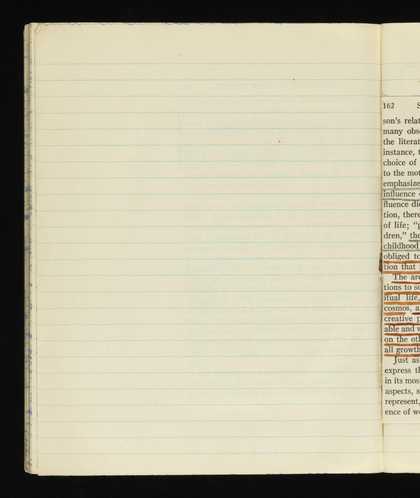 162 S
son's relat
many obse
the literat
instance, t
choice of
to the mot
emphasize
influence
fluence di
tion, there
of life; "p
dren," the
childhood
obliged to
tion that
The arc
tions to su
itual life,
cosmos, a
creative p
able and w
on the oth
all growth
Just as
express th
in its mos
aspects, s
represent,
ence of we